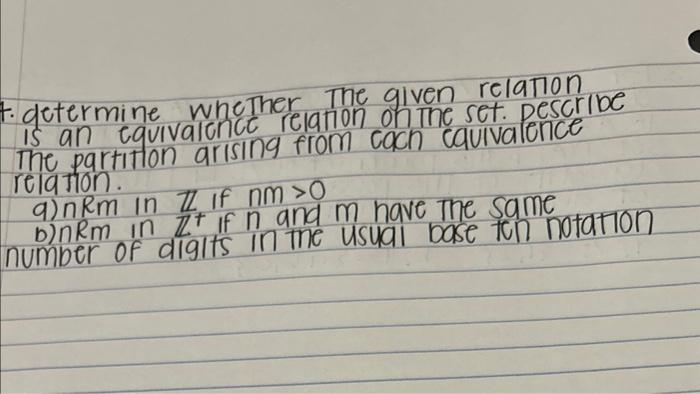 7. determine whether the given relation
is an equivalence relation on the set. Describe
the partition arising from each equivalence
relation.
a) nRm in ℤ if nm > 0
b) nRm in ℤ⁺ if n and m have the same
number of digits in the usual base ten notation